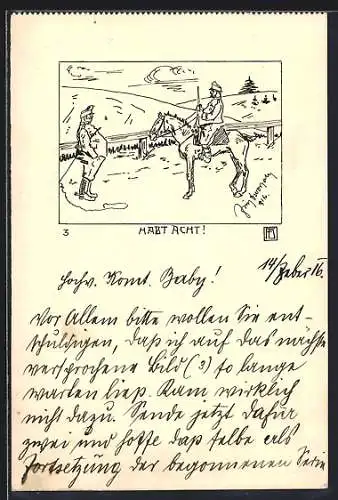 3
HABT ACHT!
14/Feber 16.
Hochv. Komt. Baby!
Vor Allem bitte wollen Sie ent-
schuldigen, daß ich auf das nächste
versprochene Bild (3) so lange
warten ließ. Kam wirklich
nicht dazu. Sende jetzt dafür
zwei und hoffe daß selbe als
Fortsetzung der begonnenen Serie